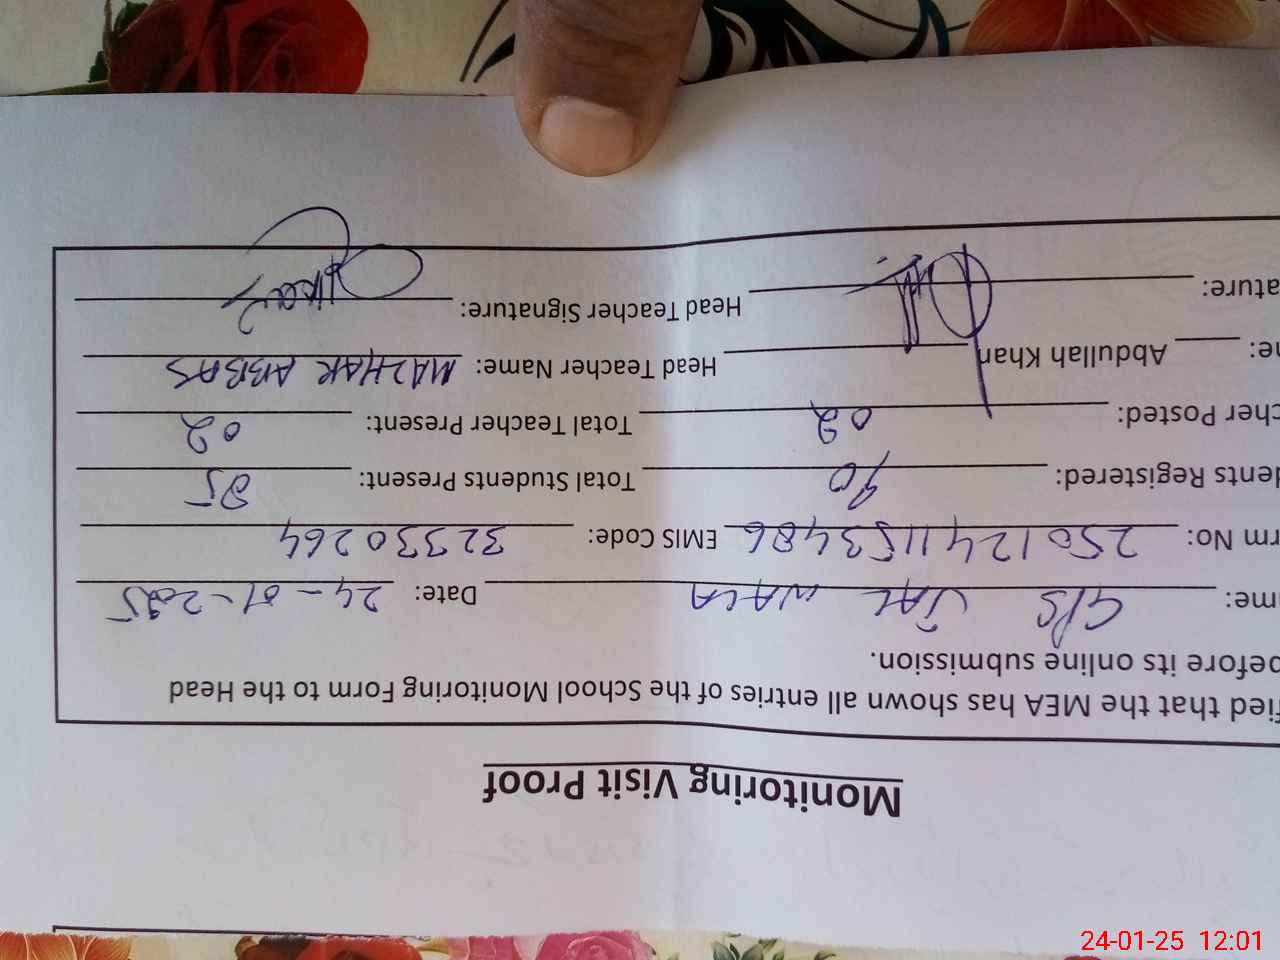 Monitoring Visit Proof
fied that the MEA has shown all entries of the School Monitoring Form to the Head
before its online submission.
me: GPS JAL WALA Date: 24-01-2025
rm No: 2501241153486 EMIS Code: 32330264
dents Registered: 90 Total Students Present: 85
cher Posted: 02 Total Teacher Present: 02
ne: Abdullah Khan Head Teacher Name: MAZHAR ABBAS
ature: Head Teacher Signature:
24-01-25 12:01